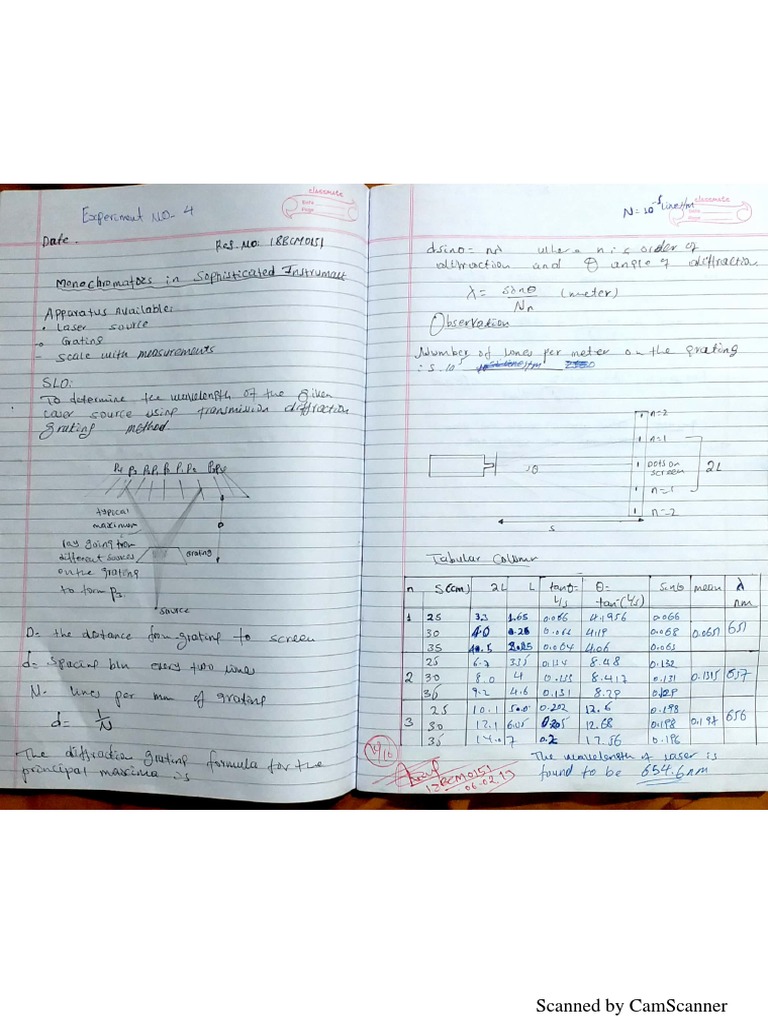 classmate
Date
Page
Experiment NO- 4
Date.
Reg. NO: 18BCM0151
Monochromators in Sophisticated Instrument
Apparatus Available:
• Laser source
• Grating
- Scale with measurements
SLO:
To determine the wavelength of the given
laser source using transmission diffraction
grating method
typical
maximum
ray going from
different sources
on the grating
to form P3
grating
source
D= the distance from grating to screen
d= spacing b/w every two lines
N- lines per mm of grating
d= 1/N
The diffraction grating formula for the
principal maxima is
classmate
Date
Page
N= 10⁻⁵ line/m
dsinθ= nλ where n is order of
diffraction and θ angle of diffraction
λ= sinθ/Nn (meter)
Observation
Number of lines per meter on the grating
n=2
n=1
dots on
screen
2L
n=1
n=-2
θ
S
Tabular Column
n S(cm) 2L L tanθ= L/s θ= tan⁻¹(L/s) sinθ mean λ nm
1 25 3.3 1.65 0.066 4.1956 0.066
30 4.0 0.064 4.19 0.068 0.0651 651
35 0.064 4.06 0.063
25 6.7 335 0.134 8.48 0.132
2 30 8.0 4 0.133 8.412 0.131 0.1315 657
35 9.2 4.6 0.131 8.29 0.129
25 10.1 0.202 12.6 0.198
3 30 12.1 6.05 0.205 12.68 0.198 0.197 656
35 14.0 7 0.2 12.56 0.196
The wavelength of laser is
found to be 654.6nm
18BCM0151
06.02.19
Scanned by CamScanner